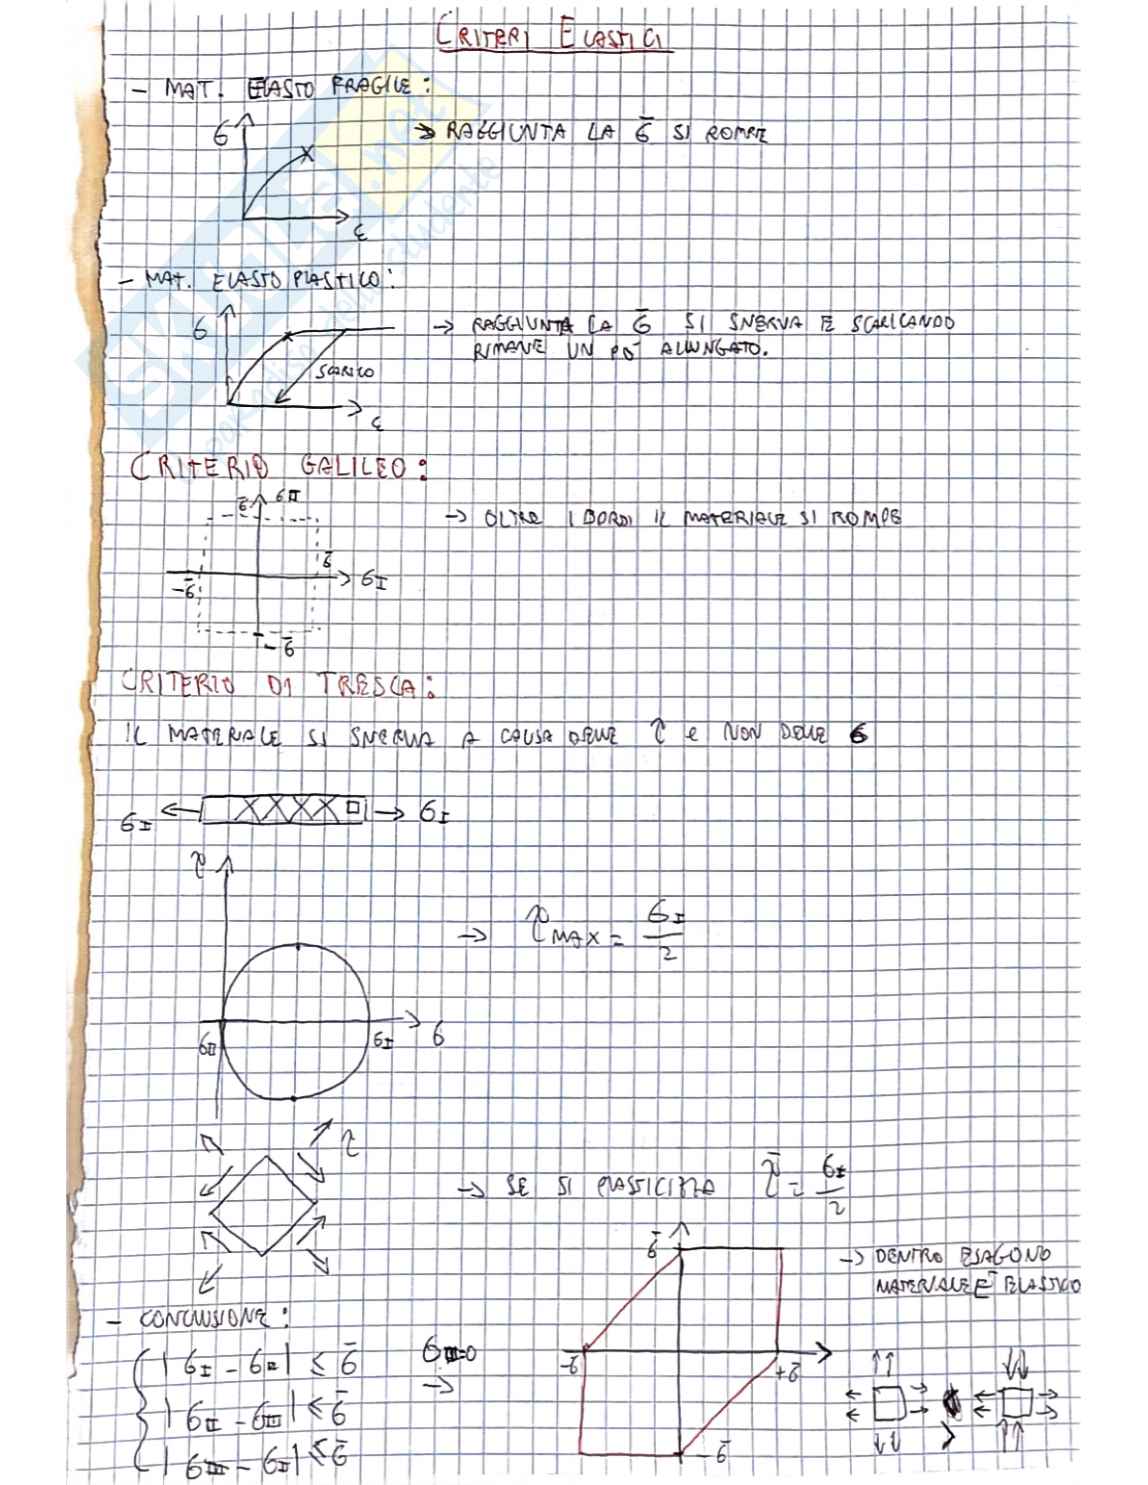 CRITERI ELASTICI
- MAT. ELASTO FRAGILE:
σ
→ RAGGIUNTA LA σ̄ SI ROMPE
ε
- MAT. ELASTO PLASTICO:
σ
→ RAGGIUNTA LA σ̄ SI SNERVA E SCARICANDO
RIMANE UN PO' ALLUNGATO.
SCARICO
ε
CRITERIO GALILEO:
σ̄ σII
→ OLTRE I BORDI IL MATERIALE SI ROMPE
σ̄
-σ̄ σI
-σ̄
CRITERIO DI TRESCA:
IL MATERIALE SI SNERVA A CAUSA DELLE τ e NON DELLE σ
σI σI
τ
→ τMAX = σI/2
σII σI σ
τ
→ SE SI PLASTICIZZA τ̄ = σI/2
σ̄
→ DENTRO ESAGONO
MATERIALE E' ELASTICO
- CONCLUSIONE:
|σI - σII| ≤ σ̄
σIII=0
→
-σ̄ +σ̄
|σII - σIII| ≤ σ̄
>
|σIII - σI| ≤ σ̄
-σ̄
skuola.net